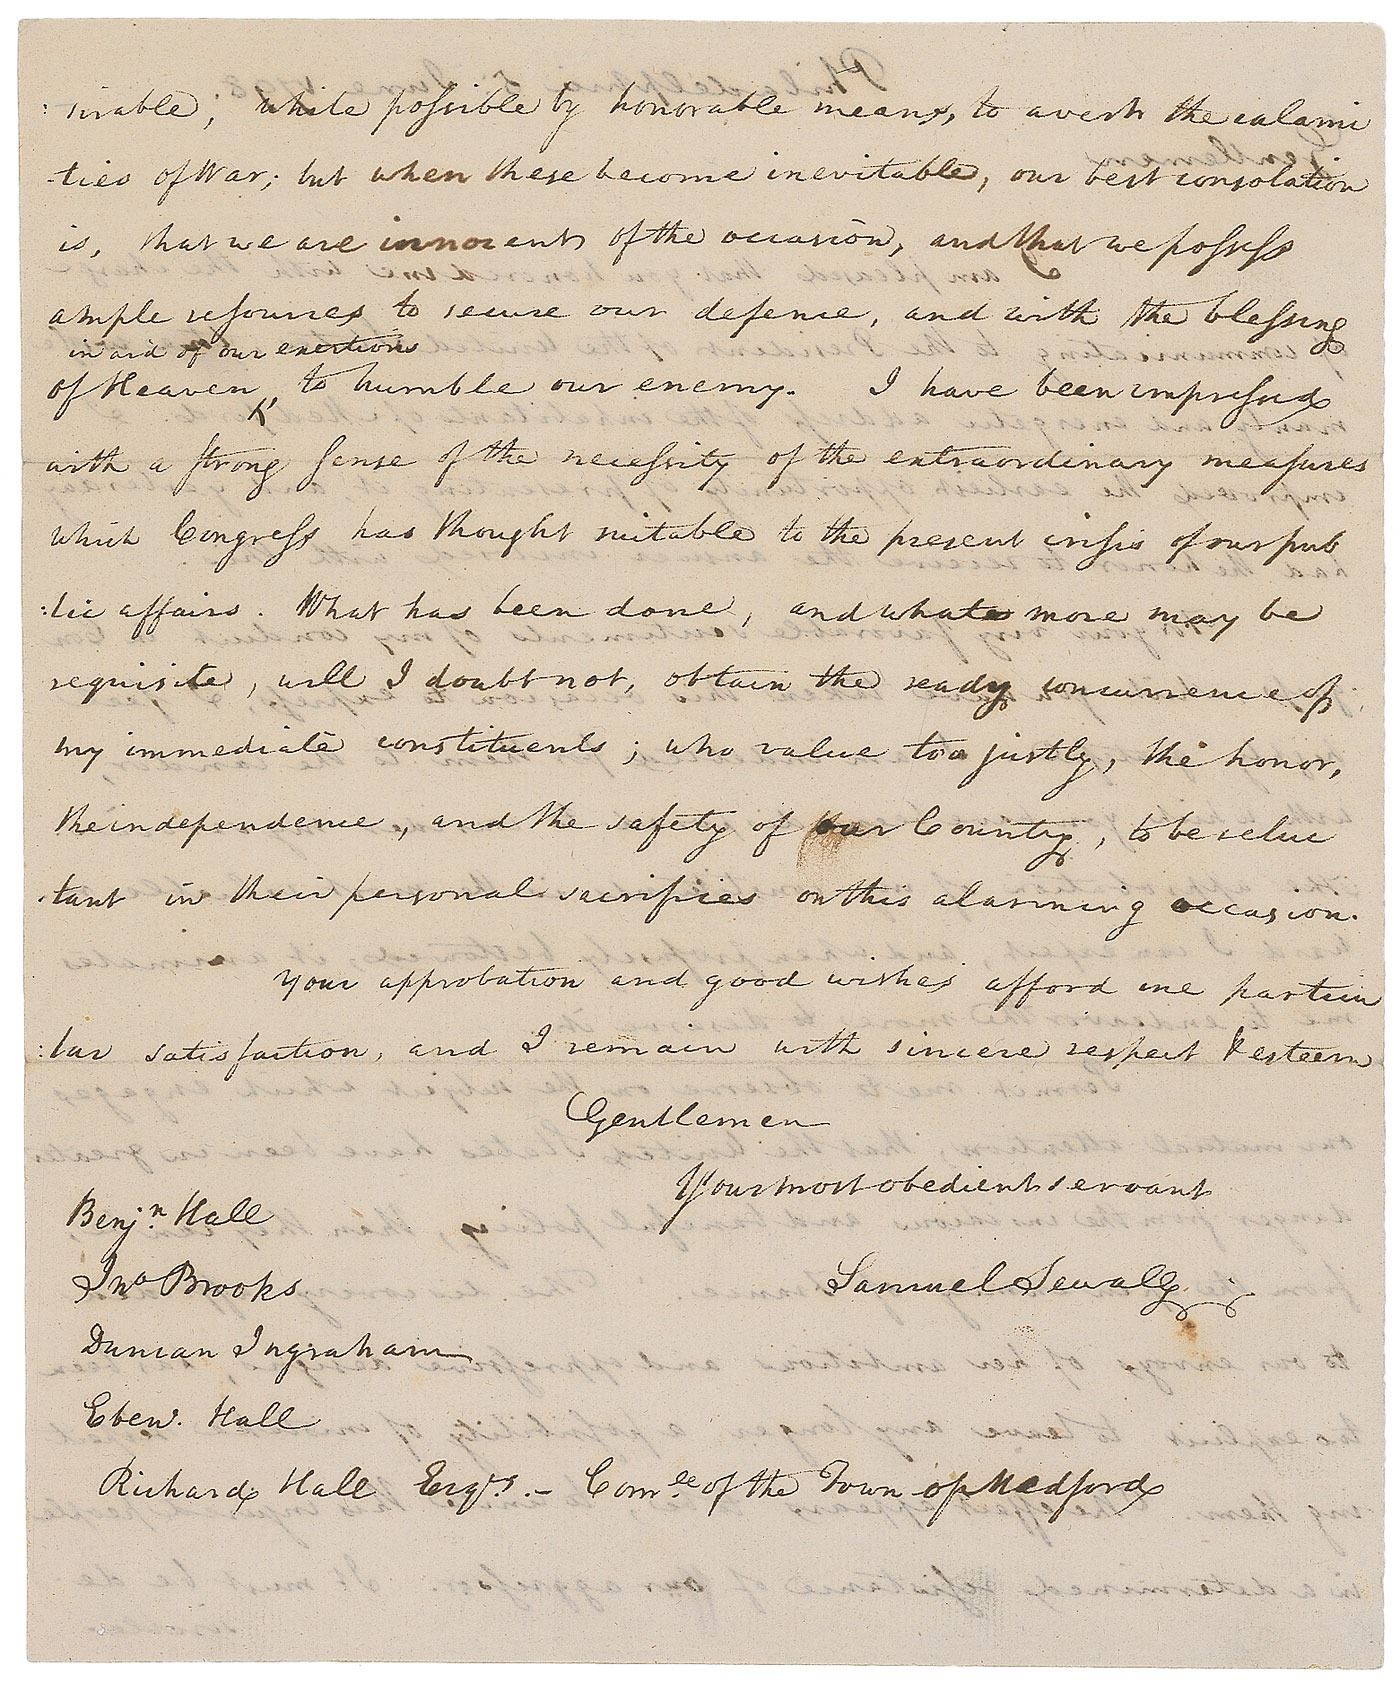 : sirable, while possible by honorable means, to avert the calami
-ties of War; but when these become inevitable, our best consolation
is, that we are innocent of the occasion, and that we possess
ample resources to secure our defence, and with the blessing
in aid of our exertions
of Heaven ^, to humble our enemy. I have been impressed
with a strong sense of the necessity of the extraordinary measures
which Congress has thought suitable to the present crisis of our pub
:lic affairs. What has been done, and whate more may be
requisite, will I doubt not, obtain the ready concurrence of
my immediate constituents; who value too justly, the honor,
the independence, and the safety of our Country, to be reluc
-tant in their personal sacrifices on this alarming occasion.
Your approbation and good wishes afford me particu
:lar satisfaction, and I remain with sincere respect & esteem
Gentlemen
Your most obedient servant
Samuel Sewall
Benjn. Hall
Jno Brooks
Duncan Ingraham
Ebenr. Hall
Richard Hall Esqrs. - Comee. of the Town of Medford